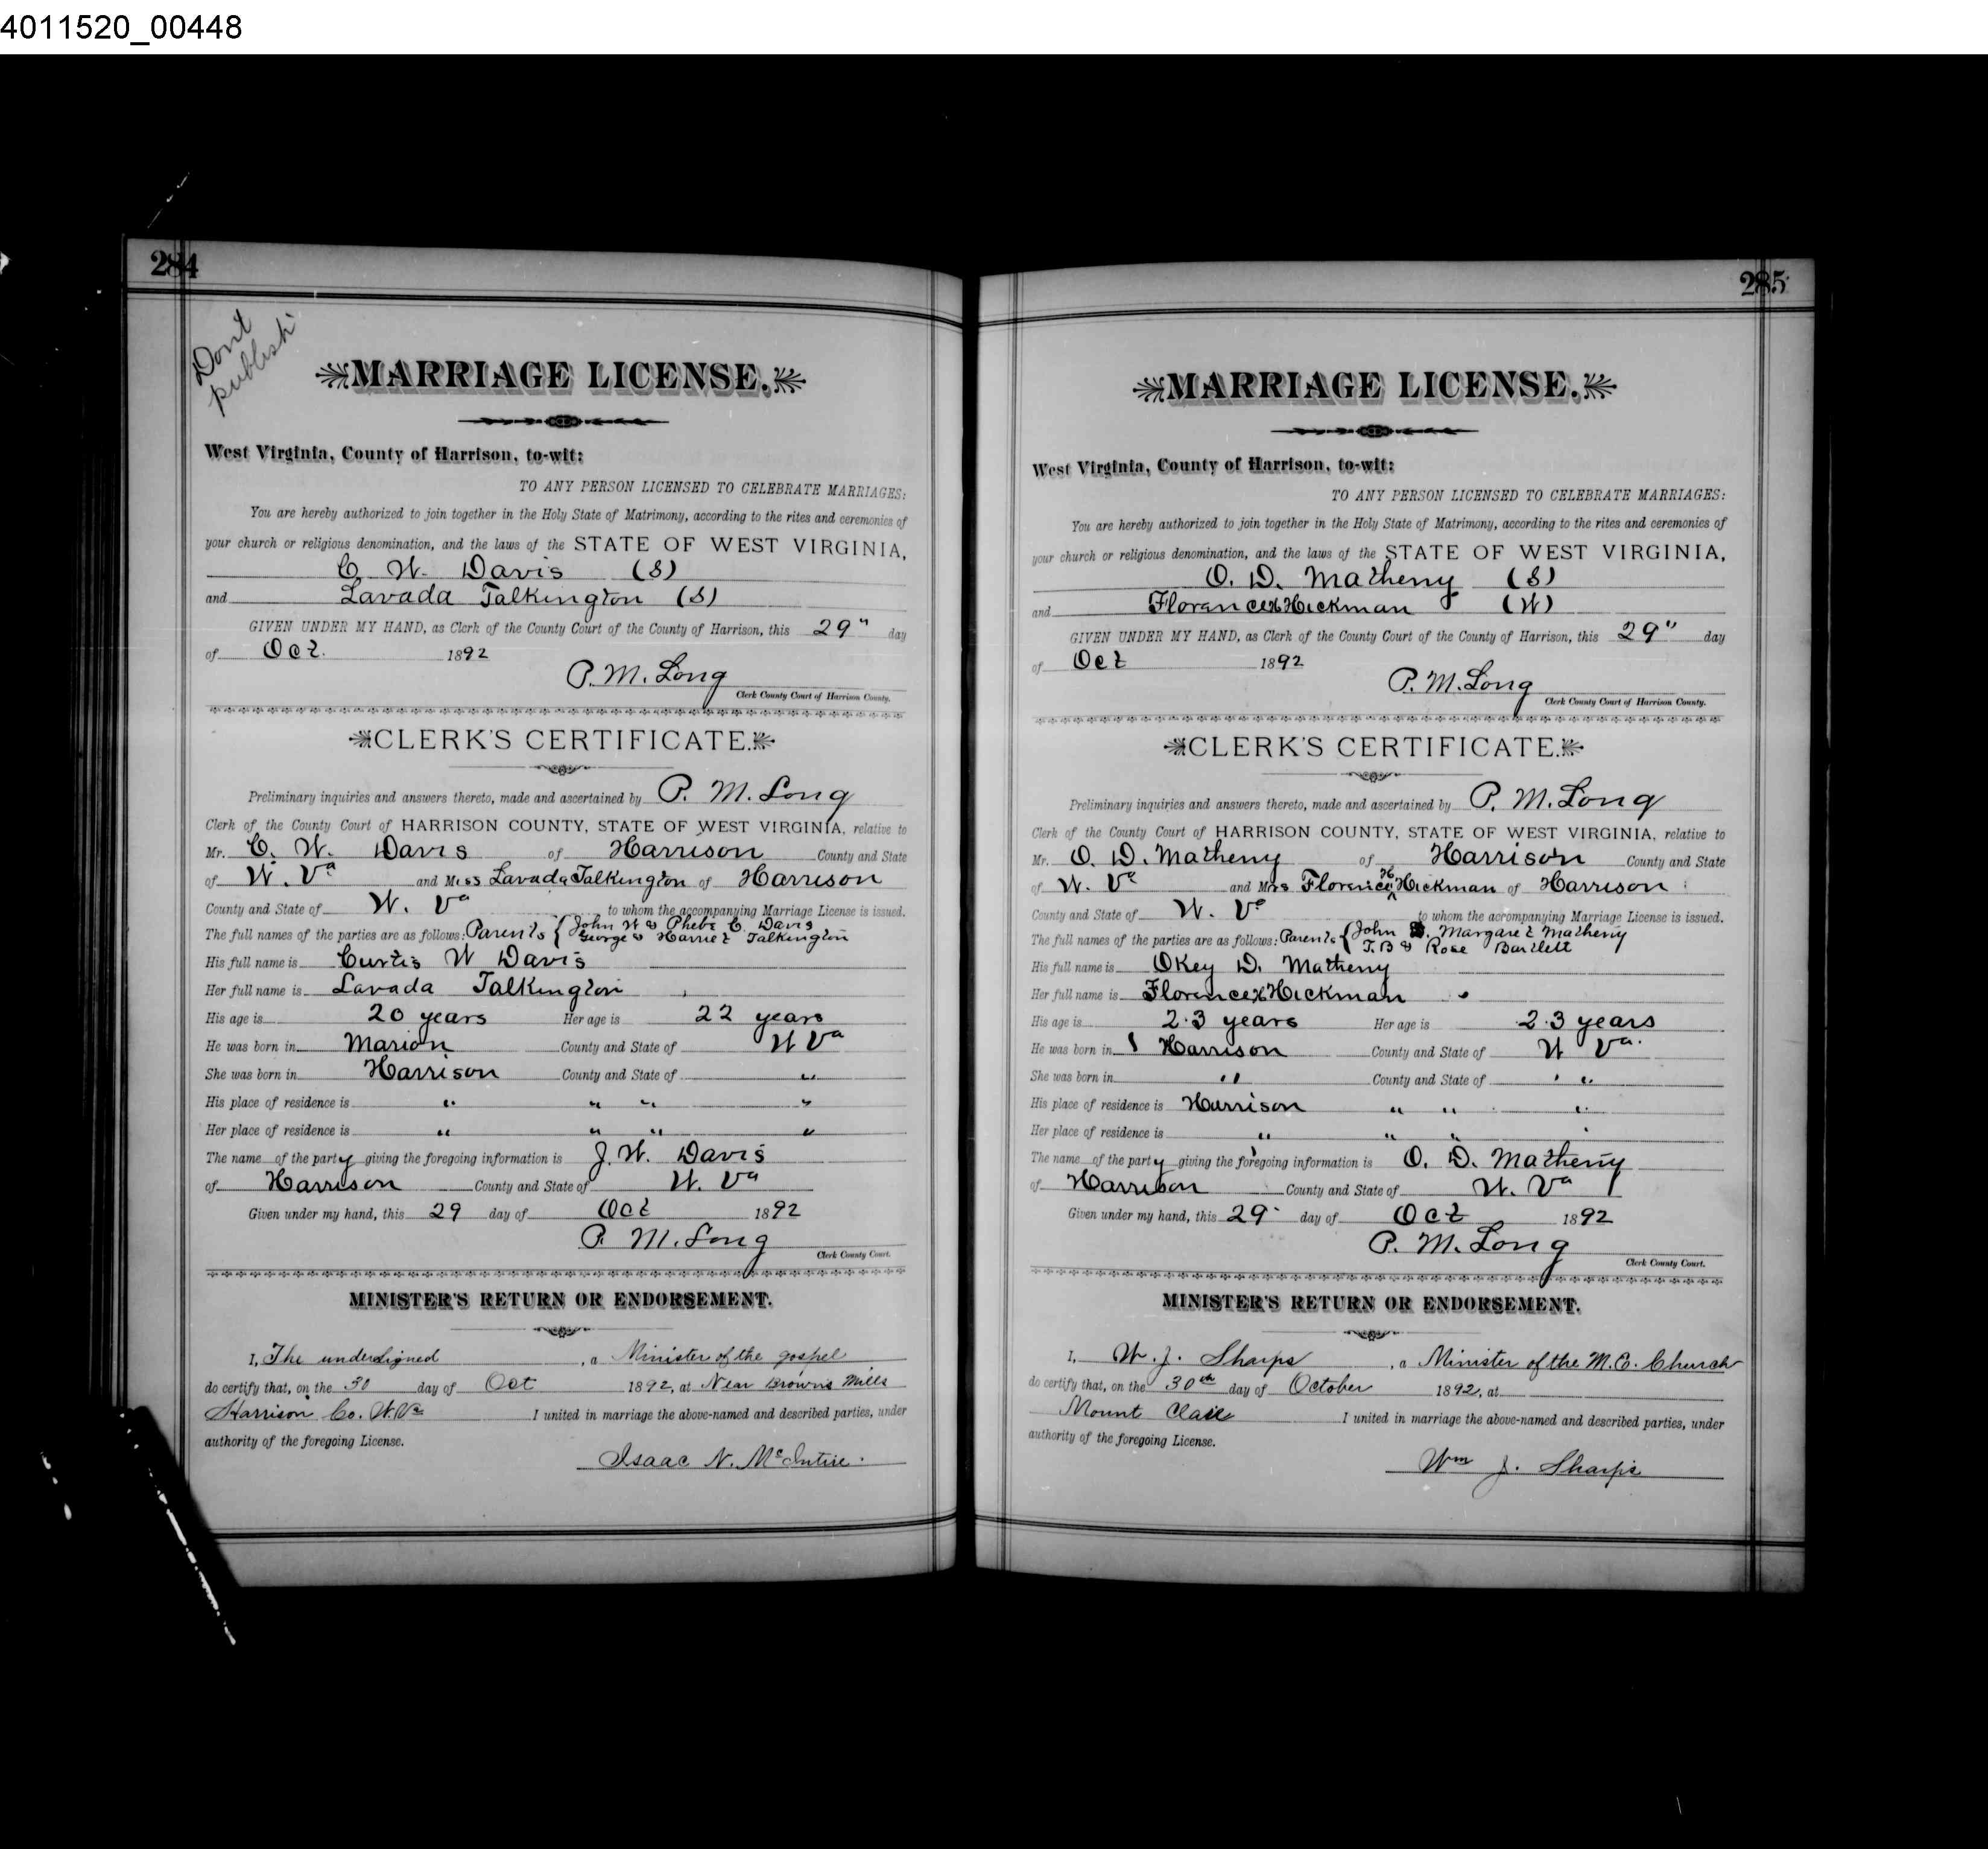 4011520_00448
284
Dont
publish
MARRIAGE LICENSE.
West Virginia, County of Harrison, to-wit:
TO ANY PERSON LICENSED TO CELEBRATE MARRIAGES:
You are hereby authorized to join together in the Holy State of Matrimony, according to the rites and ceremonies of
your church or religious denomination, and the laws of the STATE OF WEST VIRGINIA,
C. W. Davis (S)
and Lavada Talkington (S)
GIVEN UNDER MY HAND, as Clerk of the County Court of the County of Harrison, this 29" day
of Oct. 1892
P. M. Long
Clerk County Court of Harrison County.
CLERK'S CERTIFICATE.
Preliminary inquiries and answers thereto, made and ascertained by P. M. Long
Clerk of the County Court of HARRISON COUNTY, STATE OF WEST VIRGINIA, relative to
Mr. C. W. Davis of Harrison County and State
of W. Va and Miss Lavada Talkington of Harrison
County and State of W. Va to whom the accompanying Marriage License is issued.
The full names of the parties are as follows: Parents { John W & Phebe C. Davis
George & Harriet Talkington
His full name is Curtis W Davis
Her full name is Lavada Talkington
His age is 20 years Her age is 22 years
He was born in Marion County and State of W Va
She was born in Harrison County and State of "
His place of residence is " " " "
Her place of residence is " " " "
The name of the party giving the foregoing information is J. W. Davis
of Harrison County and State of W. Va
Given under my hand, this 29 day of Oct 1892
P. M. Long
Clerk County Court.
MINISTER'S RETURN OR ENDORSEMENT.
I, The undersigned, a Minister of the gospel
do certify that, on the 30 day of Oct 1892, at Near Browns Mills
Harrison Co. W. Va I united in marriage the above-named and described parties, under
authority of the foregoing License.
Isaac N. McIntire.
285
MARRIAGE LICENSE.
West Virginia, County of Harrison, to-wit:
TO ANY PERSON LICENSED TO CELEBRATE MARRIAGES:
You are hereby authorized to join together in the Holy State of Matrimony, according to the rites and ceremonies of
your church or religious denomination, and the laws of the STATE OF WEST VIRGINIA,
O. D. Matheny (S)
and Florence H Hickman (W)
GIVEN UNDER MY HAND, as Clerk of the County Court of the County of Harrison, this 29" day
of Oct 1892
P. M. Long
Clerk County Court of Harrison County.
CLERK'S CERTIFICATE.
Preliminary inquiries and answers thereto, made and ascertained by P. M. Long
Clerk of the County Court of HARRISON COUNTY, STATE OF WEST VIRGINIA, relative to
Mr. O. D. Matheny of Harrison County and State
of W. Va and Mrs Florence H Hickman of Harrison
County and State of W. Va to whom the accompanying Marriage License is issued.
The full names of the parties are as follows: Parents { John Margaret Matheny
T. B & Rose Bartlett
His full name is Okey D. Matheny
Her full name is Florence H Hickman
His age is 23 years Her age is 23 years
He was born in Harrison County and State of W Va.
She was born in " County and State of "
His place of residence is Harrison " " "
Her place of residence is " " " "
The name of the party giving the foregoing information is O. D. Matheny
of Harrison County and State of W. Va
Given under my hand, this 29 day of Oct 1892
P. M. Long
Clerk County Court.
MINISTER'S RETURN OR ENDORSEMENT.
I, W. J. Sharps, a Minister of the M. E. Church
do certify that, on the 30th day of October 1892, at
Mount Clare I united in marriage the above-named and described parties, under
authority of the foregoing License.
Wm J. Sharps